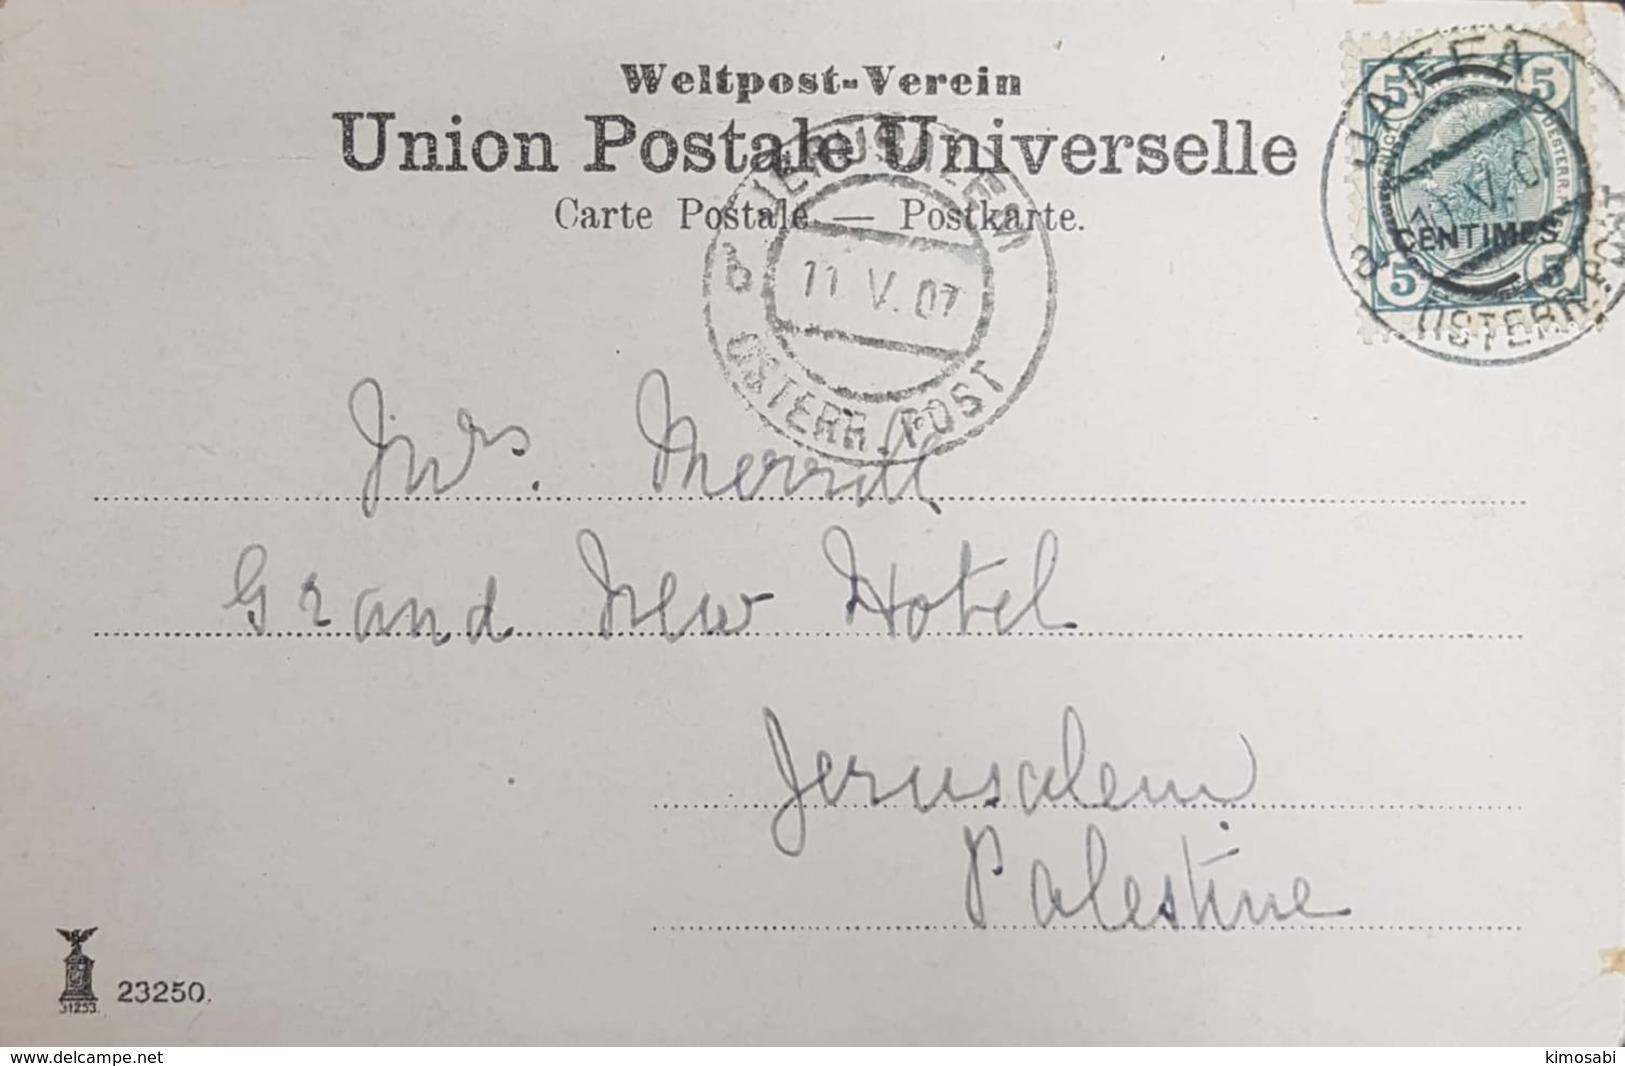 Weltpost-Verein
Union Postale Universelle
Carte Postale — Postkarte.
JAFFA
5 5
CENTIMES
5 5
ÖSTERR. POST
JERUSALEM
b
11 V. 07
ÖSTERR. POST
Mrs. Merrill
Grand New Hotel
Jerusalem
Palestine
31253.
23250.
www.delcampe.net
kimosabi